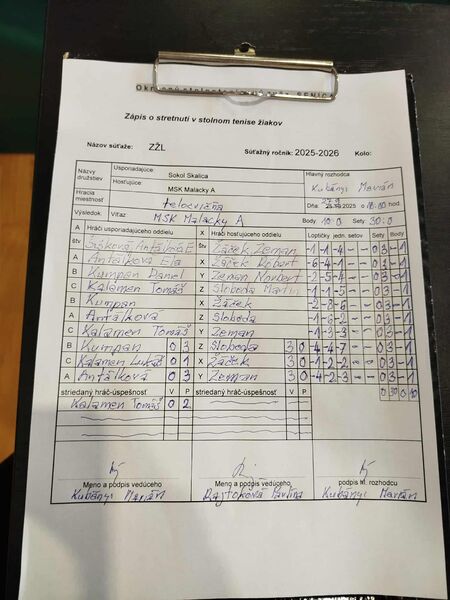 Zápis o stretnutí v stolnom tenise žiakov
Názov súťaže: ZŽL Súťažný ročník: 2025-2026 Kolo:
Názvy družstiev Usporiadajúce: Sokol Skalica Hlavný rozhodca
Hosťujúce: MSK Malacky A Kubányi Marián
Hracia miestnosť telocvičňa Dňa: 2025 o 18:00 hod.
Výsledok: Víťaz MSK Malacky A Body: 10:0 Sety: 30:0
A Hráči usporiadajúceho oddielu X Hráči hosťujúceho oddielu Loptičky jedn. setov Sety Body
štv Šišková Antálková E štv Žážek, Zeman -1 -1 -4 - - 0 3 - 1
A Antálková Ela X Žážek Robert -6 -4 -1 - - 0 3 - 1
B Kumpan Daniel Y Zeman Norbert -2 -5 -4 - - 0 3 - 1
C Kalamen Tomáš Z Sloboda Martin -1 -1 -5 - - 0 3 - 1
B Kumpan X Žážek -2 -8 -6 - - 0 3 - 1
A Antálková Z Sloboda -1 -6 -2 - - 0 3 - 1
C Kalamen Tomáš Y Zeman -1 -3 -3 - - 0 3 - 1
B Kumpan 0 3 Z Sloboda 3 0 -4 -4 -7 - - 0 3 - 1
C Kalamen Lukáš 0 1 X Žážek 3 0 -1 -2 -2 - - 0 3 - 1
A Antálková 0 3 Y Zeman 3 0 -4 -2 -3 - - 0 3 - 1
striedaný hráč-úspešnosť V P striedaný hráč-úspešnosť V P 0 30 0 10
Kalamen Tomáš 0 2
Meno a podpis vedúceho Meno a podpis vedúceho podpis hl. rozhodcu
Kubányi Marián Rajtoková Pavlína Kubányi Marián